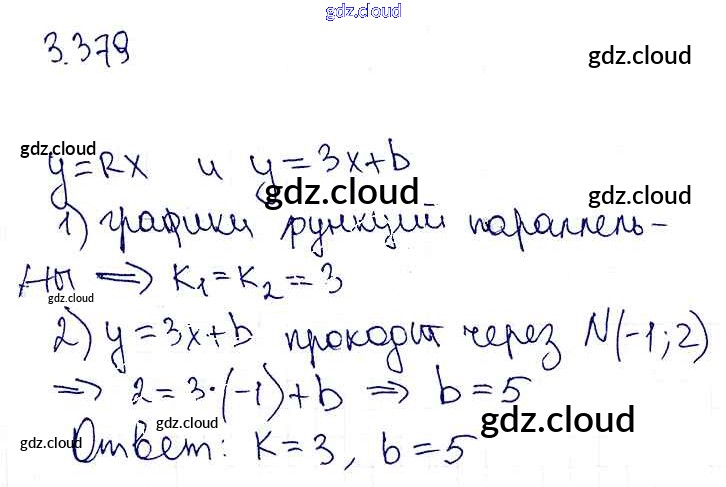 gdz.cloud
3.379
gdz.cloud
gdz.cloud
y=kx и y=3x+b
gdz.cloud
gdz.cloud
1) графики функций параллель-
ны => k₁=k₂=3
gdz.cloud
2) y=3x+b проходит через N(-1;2)
=> 2=3·(-1)+b => b=5
gdz.cloud
gdz.cloud
gdz.cloud
Ответ: k=3, b=5